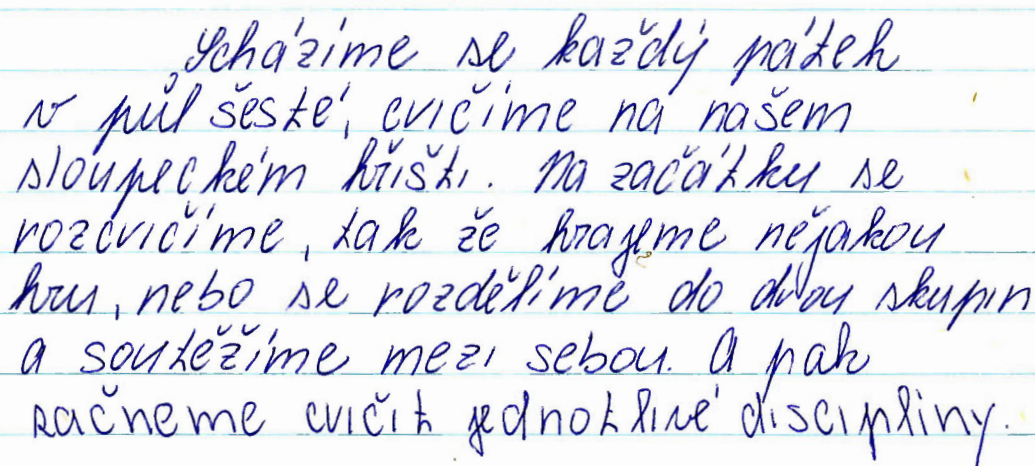 „Scházíme se každý pátek
v půl šesté, cvičíme na našem
sloupeckém hřišti. Na začátku se
rozcvičíme, tak že hrajeme nějakou
hru, nebo se rozdělíme do dvou skupin
a soutěžíme mezi sebou. A pak
začneme cvičit jednotlivé discipliny.